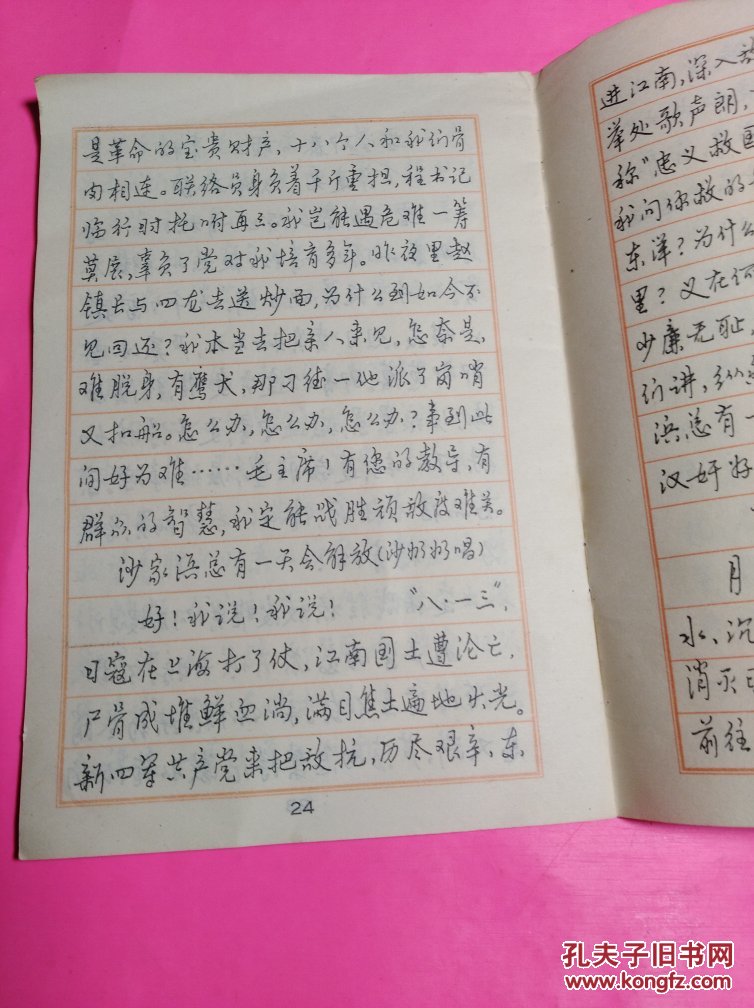 是革命的宝贵财产，十八个人和我们骨
肉相连。联络员身负着千斤重担，程书记
临行时托咐再三。我岂能遇危难一筹
莫展，辜负了党对我培育多年。昨夜里赵
镇长与四龙去送炒面，为什么到如今不
见回还？我本当去把亲人来见，怎奈是，
难脱身，有鹰犬，那刁德一他派了岗哨
又扣船。怎么办，怎么办，怎么办？事到此
间好为难……毛主席！有您的教导，有
群众的智慧，我定能战胜顽敌渡难关。
沙家浜总有一天会解放（沙奶奶唱）
好！我说！我说！ “八·一三”，
日寇在上海打了仗，江南国土遭沦亡，
尸骨成堆鲜血淌，满目焦土遍地火光。
新四军共产党来把敌抗，历尽艰辛，东
24
进江南，深入敌
举处歌声朗，
称“忠义救国
我问你救的
东洋？为什么
里？义在何
少廉无耻，
们讲，纵
浜总有一
汉奸好
月
水、沉
消灭
前往
孔夫子旧书网
www.kongfz.com